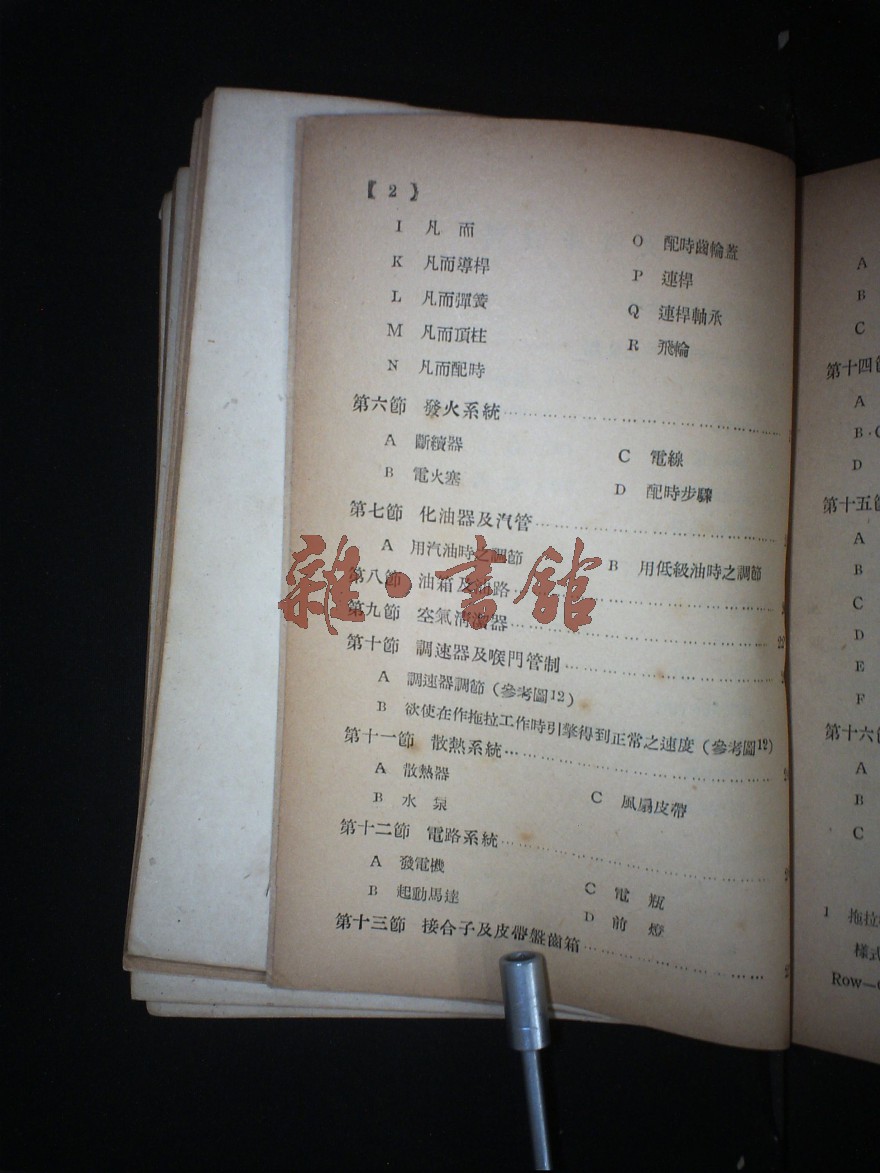 【 2 】
I 凡 而
O 配時齒輪蓋
K 凡而導桿
P 連桿
L 凡而彈簧
Q 連桿軸承
M 凡而頂柱
R 飛輪
N 凡而配時
第六節 發火系統
A 斷續器
C 電線
B 電火塞
D 配時步驟
第七節 化油器及汽管
A 用汽油時之調節
B 用低級油時之調節
第八節 油箱及油路
第九節 空氣清潔器 22
第十節 調速器及喉門管制
A 調速器調節(參考圖12)
B 欲使在作拖拉工作時引擎得到正常之速度(參考圖12)
第十一節 散熱系統
A 散熱器
B 水 泵
C 風扇皮帶
第十二節 電路系統
A 發電機
C 電 瓶
B 起動馬達
D 前 燈
第十三節 接合子及皮帶盤齒箱
雜·書館
A
B
C
第十四節
A
B
D
第十五節
A
B
C
D
E
F
第十六節
A
B
C
1 拖拉
樣式
Row—